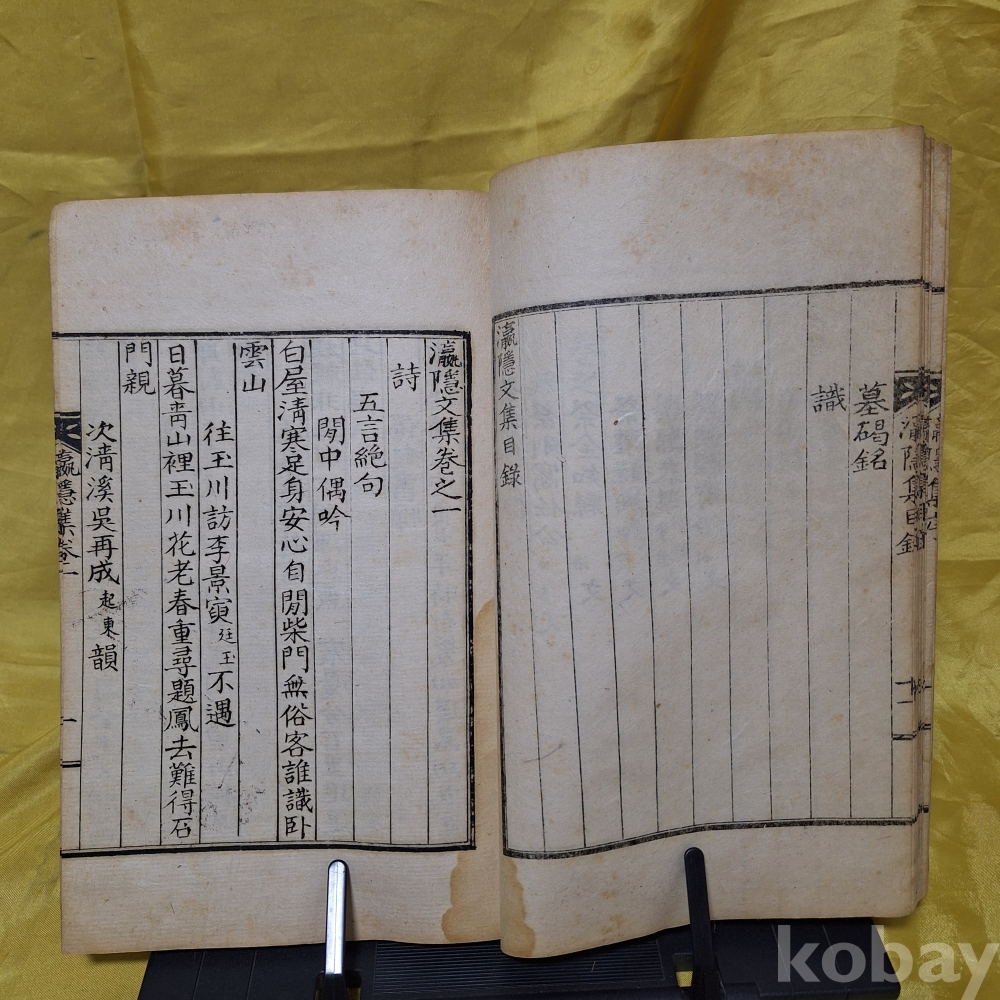 墓碣銘
識
瀛隱文集目錄
瀛隱文集卷之一
詩
五言絶句
閒中偶吟
白屋淸寒足身安心自閒柴門無俗客誰識卧
雲山
往玉川訪李景寅廷玉不遇
日暮靑山裡玉川花老春重尋題鳳去難得石
門親
次淸溪吳再成起東韻
瀛隱集卷一
一
kobay